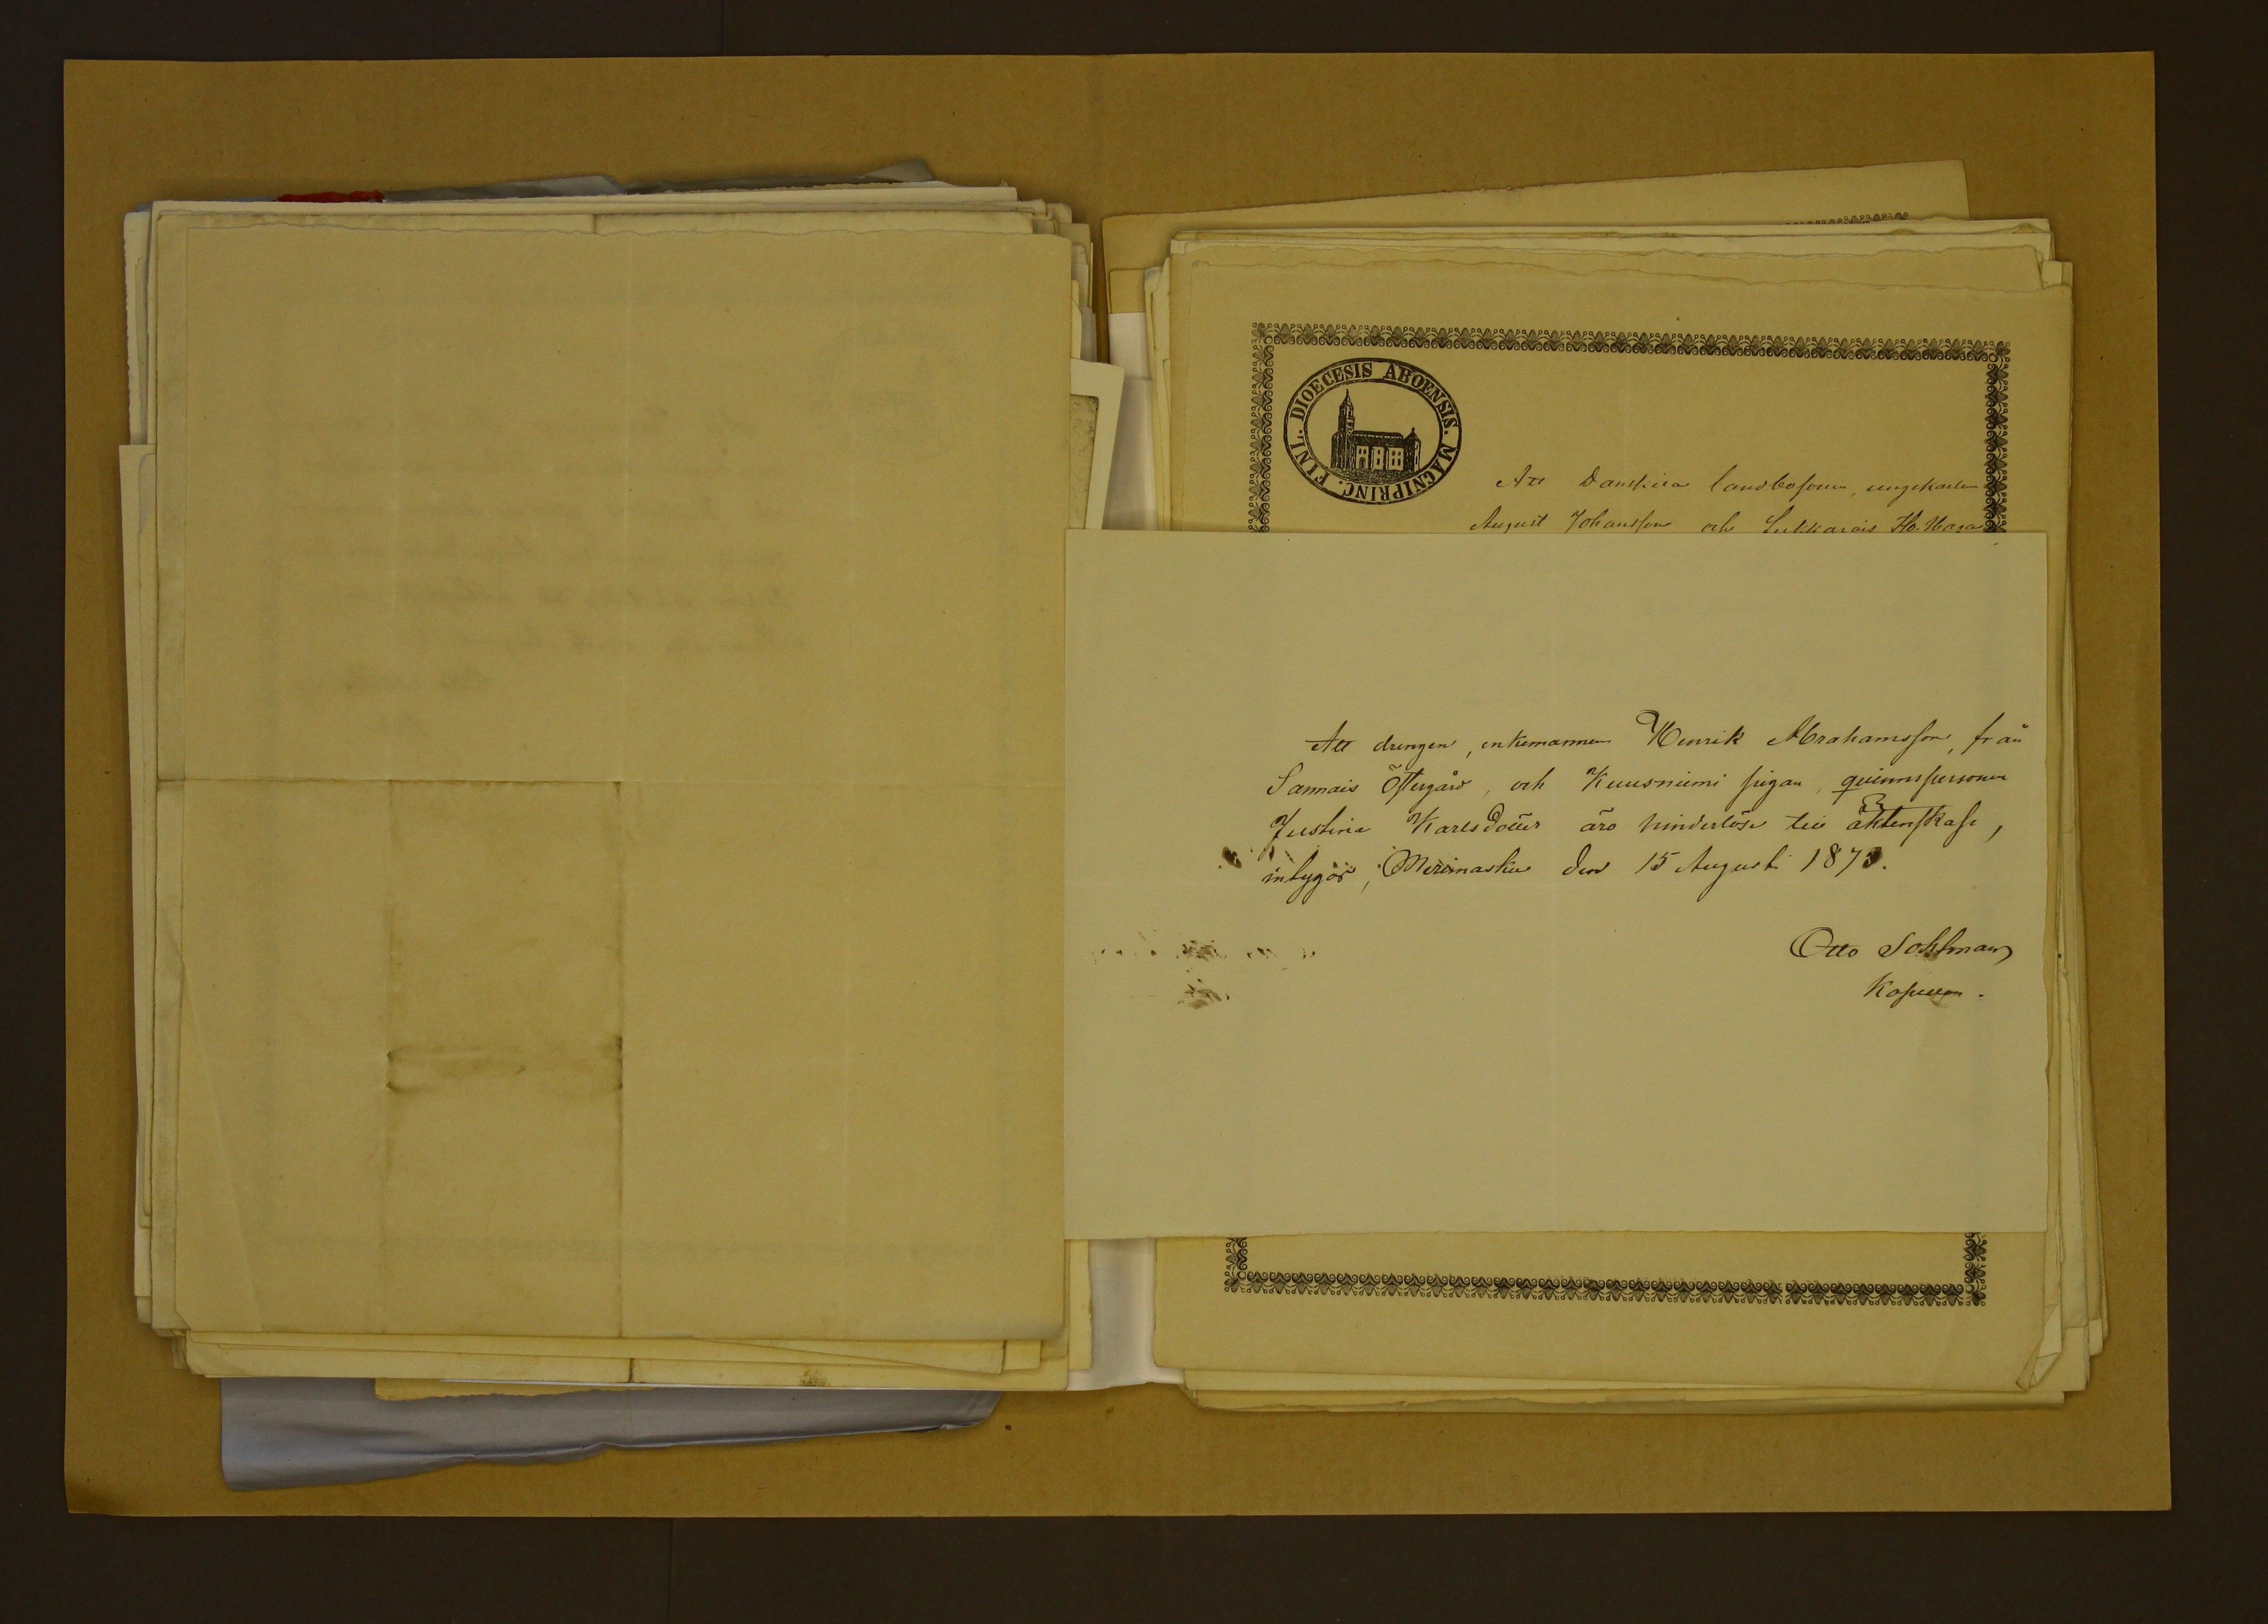 DIOECESIS ABOENSIS. MAGNIPRINC. FINL.
Att Danskila landbosonen, ungekarlen
August Johansson och Lukkarais Hb. Maga
Att drengen, enkemannen Henrik Abrahamsson, från
Sannais Östergård, och Kuusniemi pigan, qvinnspersonen
Justina Karlsdotter äro hinderlöse till äktenskap,
intygar, Merimasku den 15 Augusti 1873.
Otto Sohlman
Kapellan.